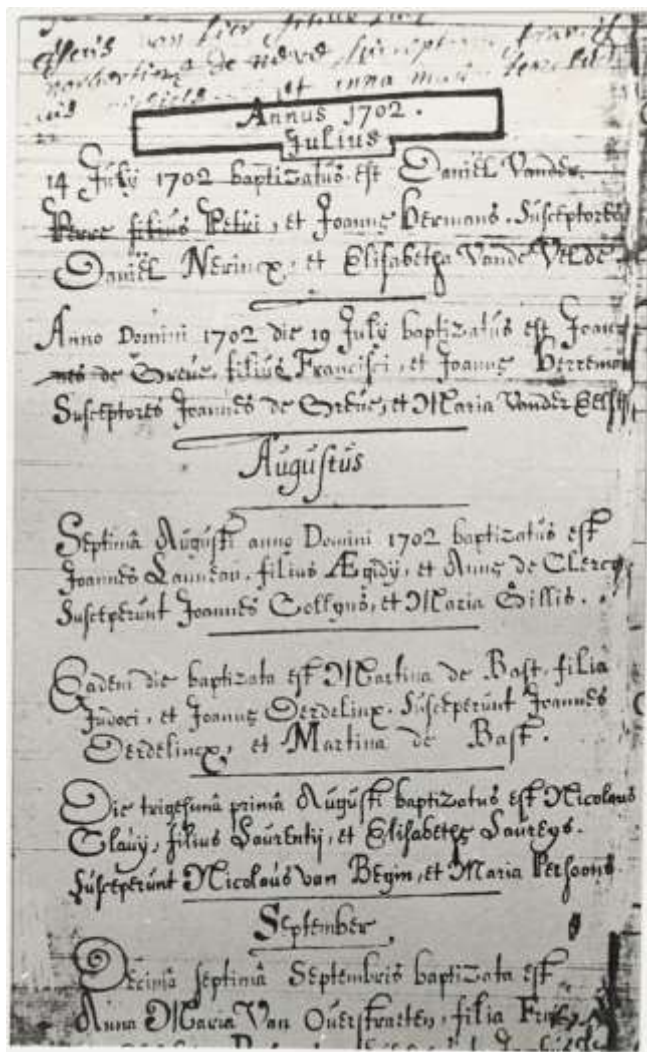 Annus 1702.
Julius
14 July 1702 baptizatus est Daniël Vander
Perre filius Petri, et Joannę Hermans. Susceptores
Daniël Nerincx, et Elisabetha Vande Velde.
Anno Domini 1702 die 19 July baptizatus est Joan-
nes de Greue, filius Francisci, et Joannę
Susceptores Joannes de Greue, et Maria Vander Eelst
Augustus
Septimâ Augusti anno Domini 1702 baptizatus est
Joannes Launeau, filius Ægidÿ, et Annę de Clercq
Susceperunt Joannes Collÿns, et Maria Gillis.
Eadem die baptizata est Martina de Bast, filia
Judoci, et Joannę Derdelinx. Susceperunt Joannes
Derdelincx, et Martina de Bast.
Die trigesimâ primâ Augusti baptizatus est Nicolaus
filius Laurentij, et Elisabethę Laureÿs.
Susceperunt Nicolaus van et Maria Persoons
September
Decimâ septimâ Septembris baptizata est
Anna Maria Van Ouerstraeten, filia